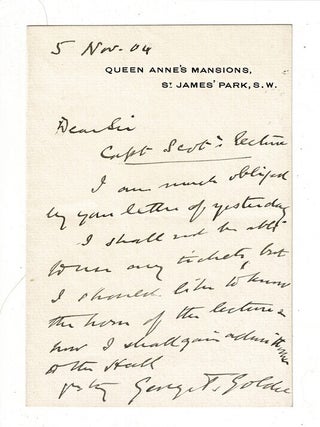 5 Nov. 04
QUEEN ANNE'S MANSIONS,
ST JAMES' PARK, S.W.
Dear Sir
Capt Scott's Lecture
I am much obliged
by your letter of yesterday
I shall not be able
to use any tickets, but
I should like to know
the hour of the lecture &
how I shall gain admittance
to the Hall
George T. Goldie